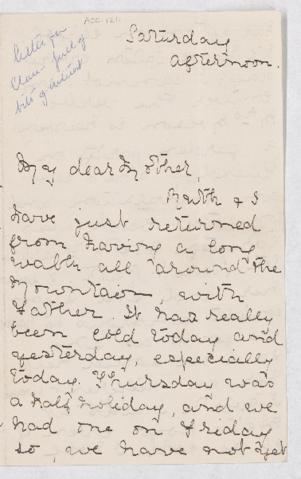 Acc. 121
Letter from
Clare full of
bits of interest
Saturday
afternoon.
My dear Mother,
Ruth & I
have just returned
from having a long
walk all around the
Mountain, with
Father. It has really
been cold today and
yesterday, especially
today. Thursday was
a half holiday, and we
had one on Friday
so, we have not yet